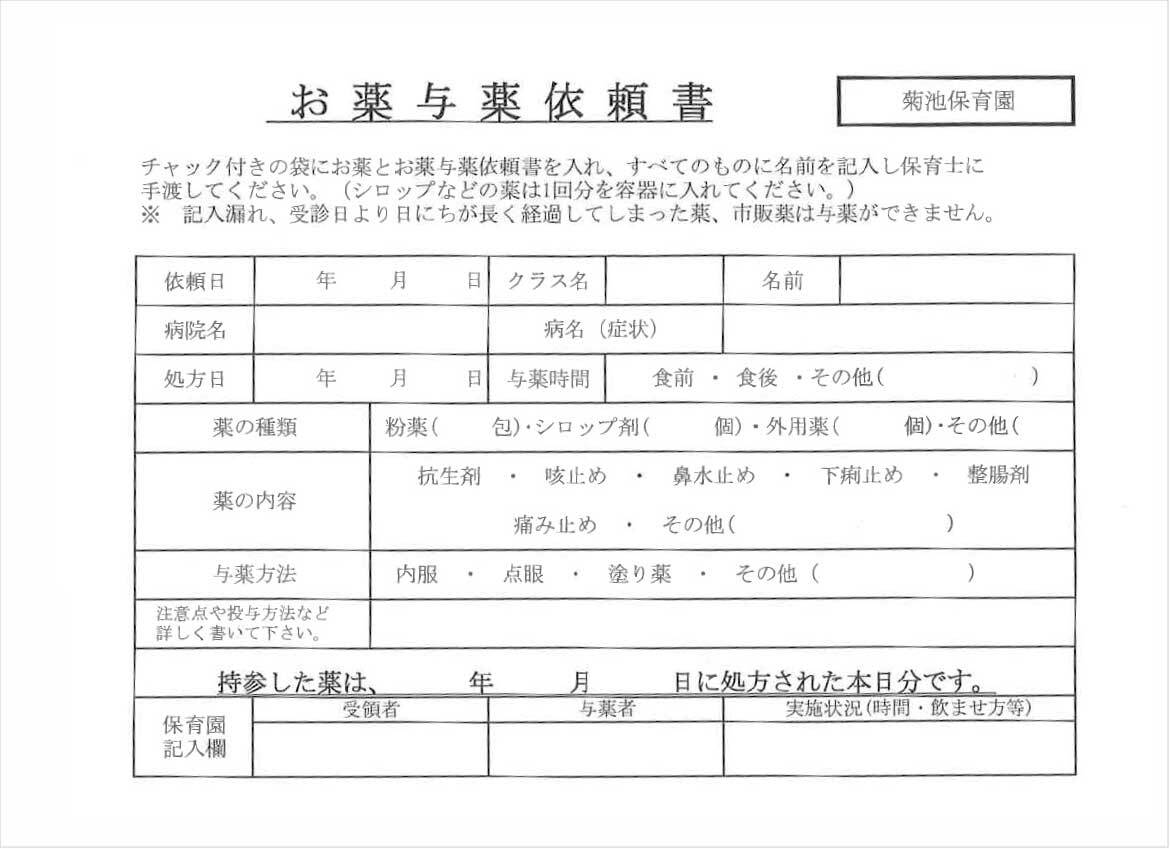 お薬与薬依頼書
菊池保育園
チャック付きの袋にお薬とお薬与薬依頼書を入れ、すべてのものに名前を記入し保育士に
手渡してください。（シロップなどの薬は1回分を容器に入れてください。）
※　記入漏れ、受診日より日にちが長く経過してしまった薬、市販薬は与薬ができません。
依頼日　年　月　日　クラス名　名前
病院名　病名（症状）
処方日　年　月　日　与薬時間　食前 ・ 食後 ・その他(　)
薬の種類　粉薬(　包)・シロップ剤(　個)・外用薬(　個)・その他(
薬の内容　抗生剤　・　咳止め　・　鼻水止め　・　下痢止め　・　整腸剤
痛み止め　・　その他(　)
与薬方法　内服　・　点眼　・　塗り薬　・　その他（　)
注意点や投与方法など
詳しく書いて下さい。
持参した薬は、　年　月　日に処方された本日分です。
保育園
記入欄
受領者　与薬者　実施状況(時間・飲ませ方等)